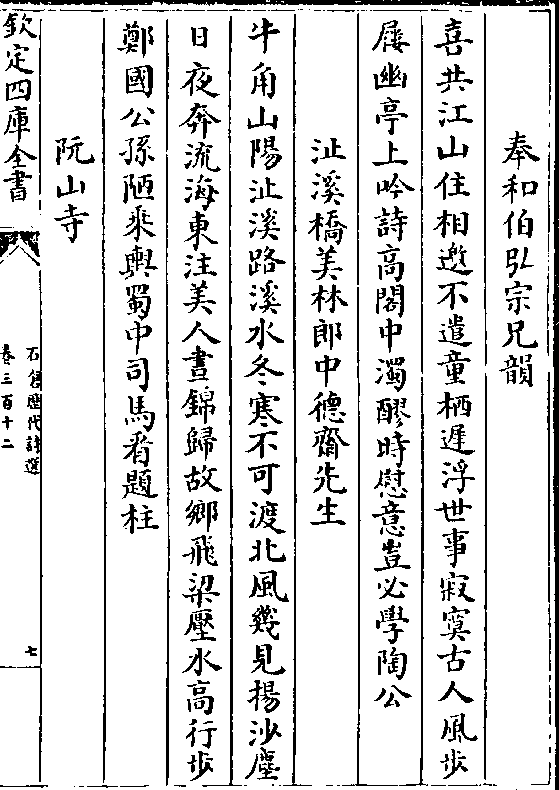 奉和伯弘宗兄韻
喜共江山住相邀不遣童栖遲浮世事寂寞古人風步
屧幽亭上吟詩高閣中濁醪時慰意豈必學陶公
沚溪橋美林郎中德齋先生
牛角山陽沚溪路溪水冬寒不可渡北風幾見揚沙塵
日夜奔流海東注美人晝錦歸故鄉飛梁壓水高行步
鄭國公孫陋乘輿蜀中司馬看題柱
阮山寺
欽定四庫全書
石倉歷代詩選
卷三百十二
七